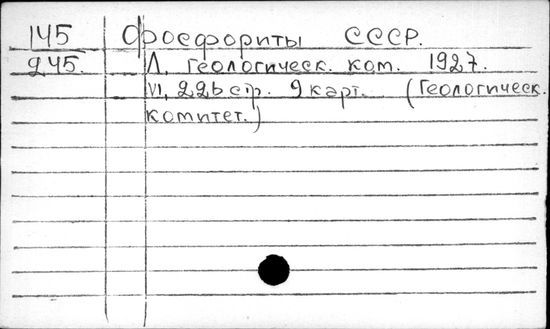 145 Фосфориты СССР.
245. Л. Геологическ. ком. 1927.
VI, 226 стр. 9 карт. (Геологическ.
комитет.)